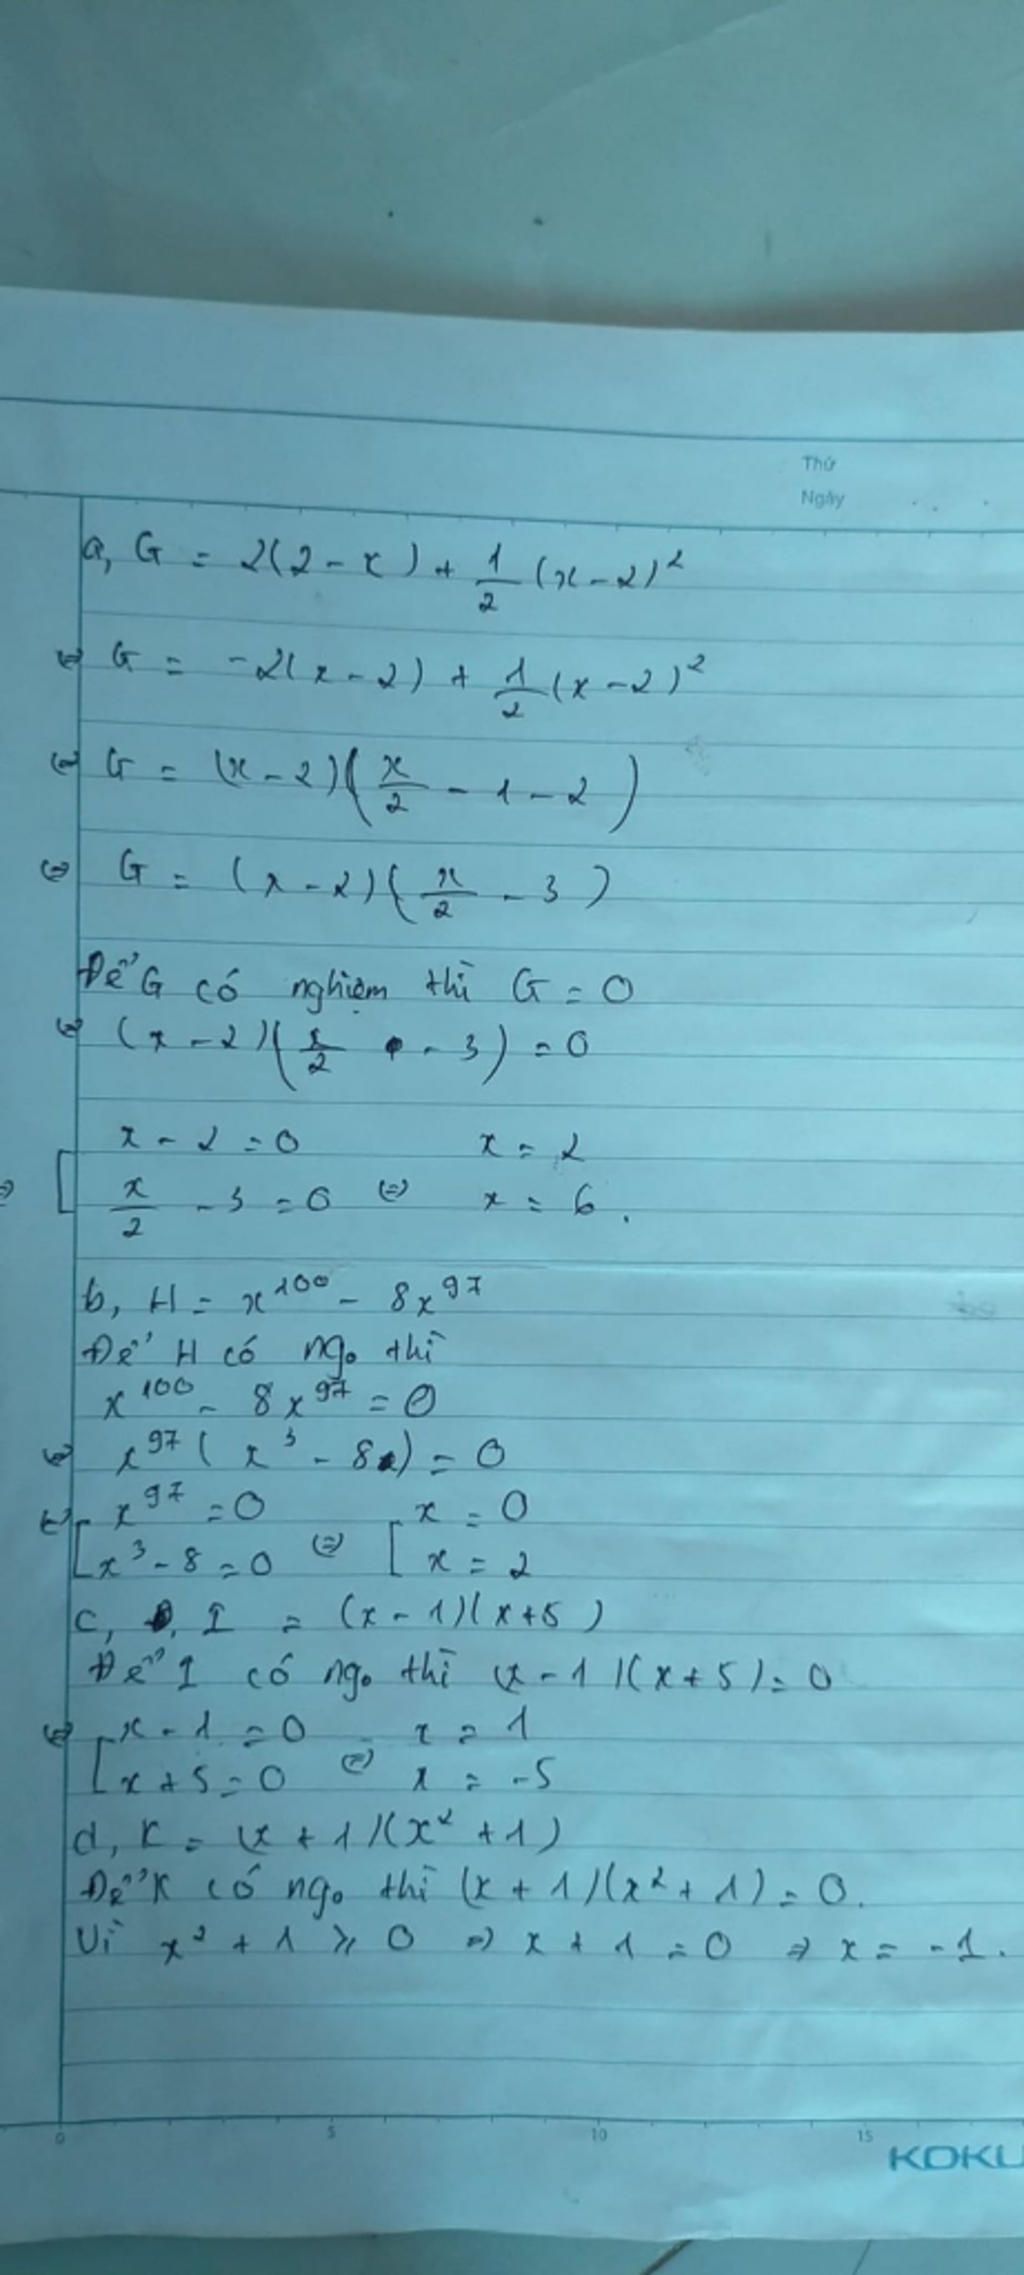 Thứ
Ngày
a, G = 2(2 - x) + 1/2 (x - 2)²
(=) G = -2(x - 2) + 1/2 (x - 2)²
(=) G = (x - 2)(x/2 - 1 - 2)
(=) G = (x - 2)(x/2 - 3)
Để G có nghiệm thì G = 0
(=) (x - 2)(x/2 - 3) = 0
x - 2 = 0 x = 2
=) [ x/2 - 3 = 0 (=) x = 6.
b, H = x¹⁰⁰ - 8x⁹⁷
Để H có ngo thì
x¹⁰⁰ - 8x⁹⁷ = 0
(=) x⁹⁷ ( x³ - 8 ) = 0
(=) [ x⁹⁷ = 0 [ x = 0
x³ - 8 = 0 (=) x = 2
c, I = (x - 1)(x + 5)
Để I có ngo thì (x - 1)(x + 5) = 0
(=) [ x - 1 = 0 x = 1
x + 5 = 0 (=) x = -5
d, K = (x + 1)(x² + 1)
Để K có ngo thì (x + 1)(x² + 1) = 0.
Vì x² + 1 ≥ 0 => x + 1 = 0 => x = -1.
0 5 10 15
KOKU